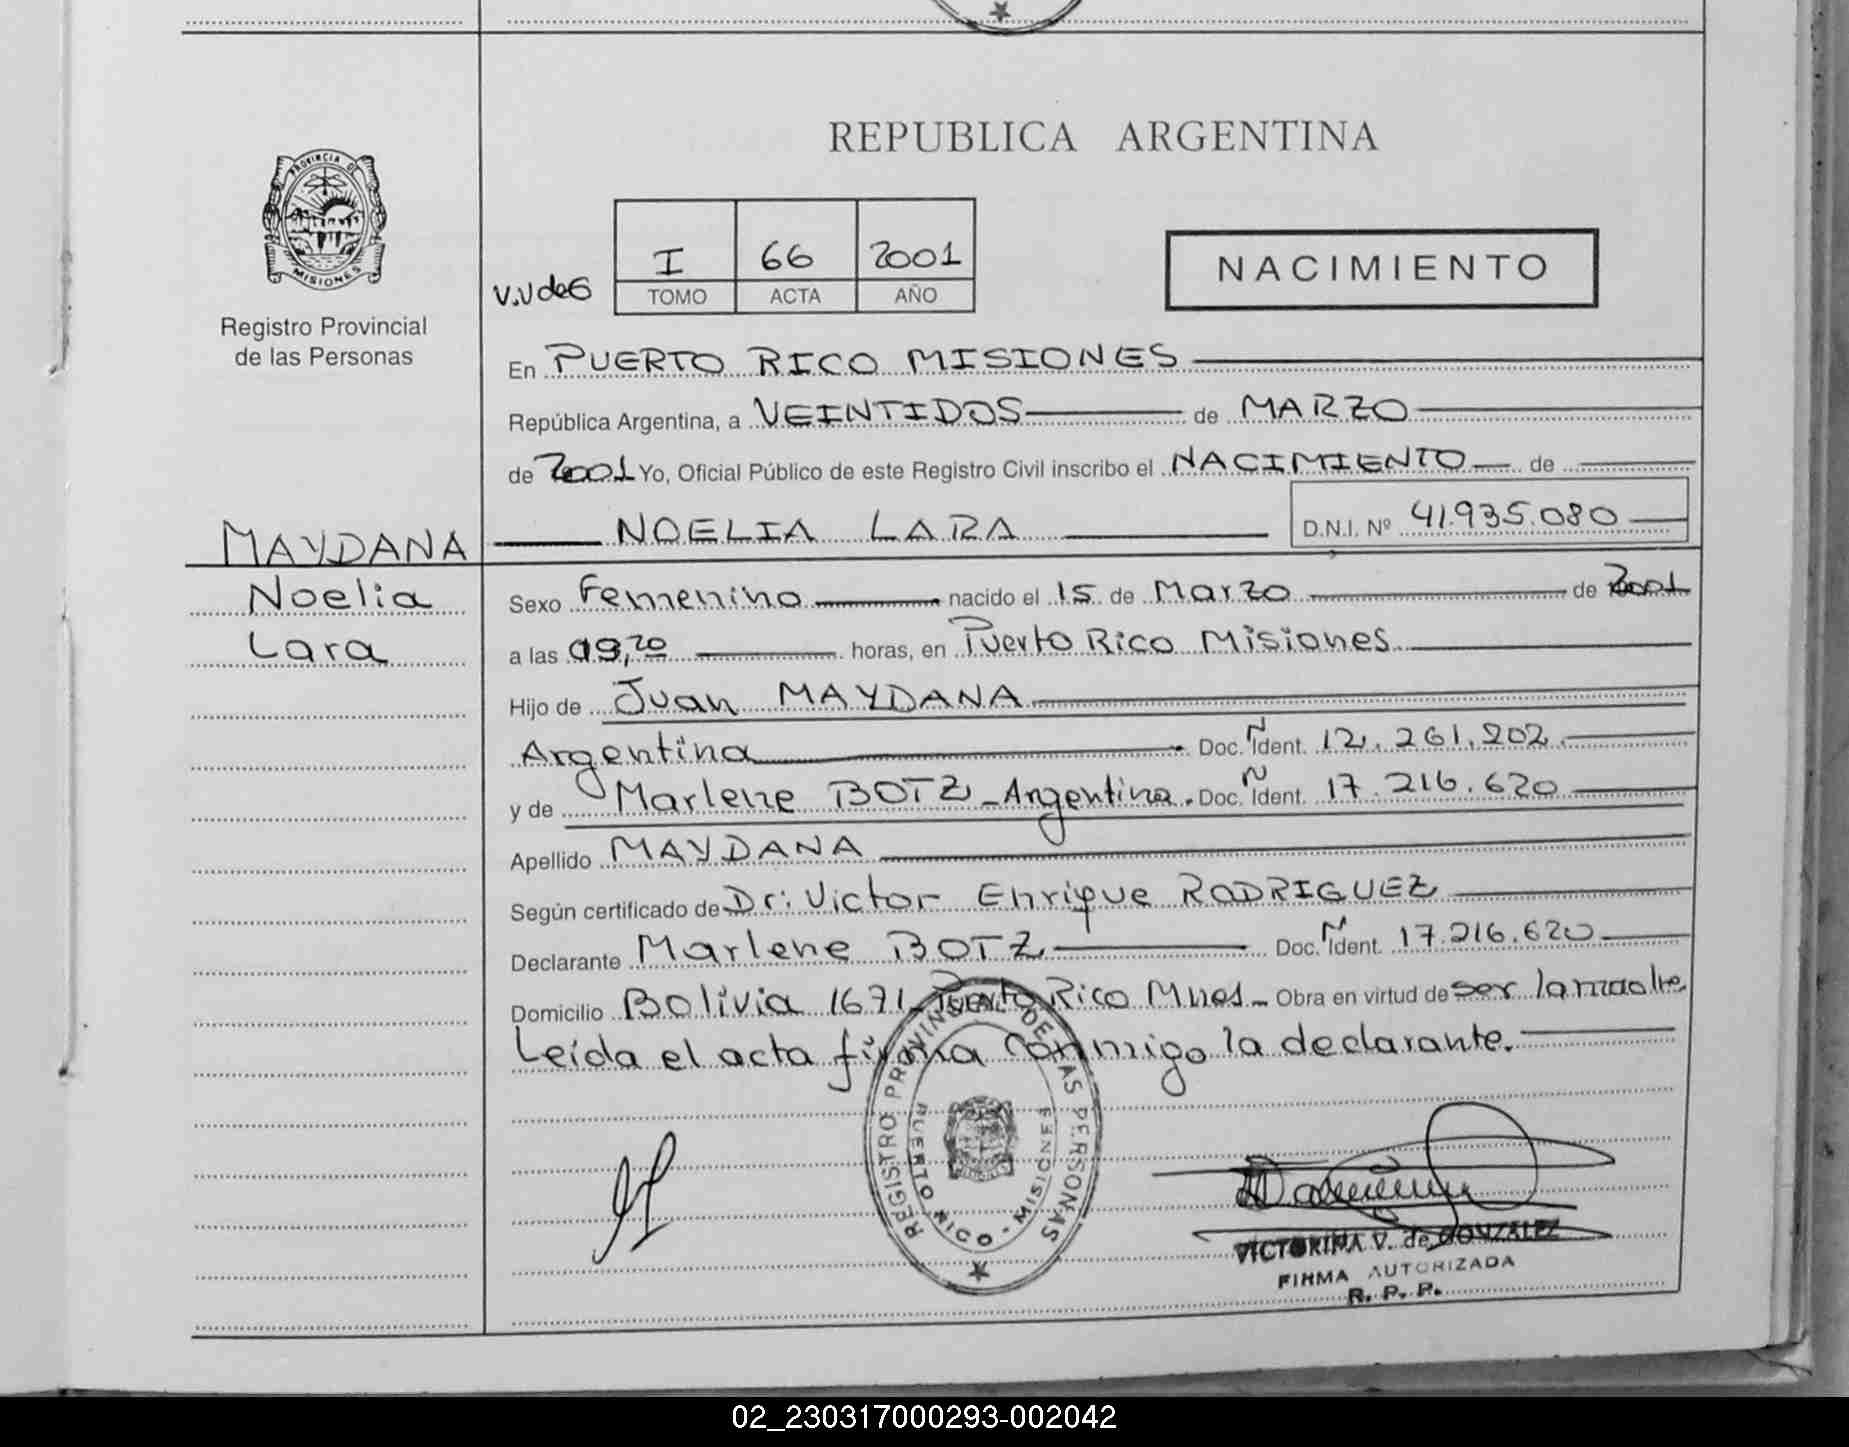 REPUBLICA ARGENTINA
PROVINCIA DE MISIONES
Registro Provincial
de las Personas
V.V de G
I 66 2001
TOMO ACTA AÑO
NACIMIENTO
En PUERTO RICO MISIONES
República Argentina, a VEINTIDOS de MARZO
de 2001 Yo, Oficial Público de este Registro Civil inscribo el NACIMIENTO de
NOELIA LARA D.N.I. Nº 41.935.080
MAYDANA
Noelia
Lara
Sexo Femenino nacido el 15 de Marzo de 2001
a las 19,20 horas, en Puerto Rico Misiones
Hijo de Juan MAYDANA
Argentina Doc. Ñ Ident. 12.261.202
y de Marlene BOTZ - Argentina. Doc. Ñ Ident. 17.216.620
Apellido MAYDANA
Según certificado de Dr: Victor Enrique RODRIGUEZ
Declarante Marlene BOTZ Doc. Ñ Ident. 17.216.620
Domicilio Bolivia 1671 - Puerto Rico Mnes - Obra en virtud de ser la madre
Leída el acta firma conmigo la declarante.
REGISTRO PROVINCIAL DE LAS PERSONAS
PUERTO RICO - MISIONES
VICTORINA V. de GONZALEZ
FIRMA AUTORIZADA
R. P. P.
02_230317000293-002042